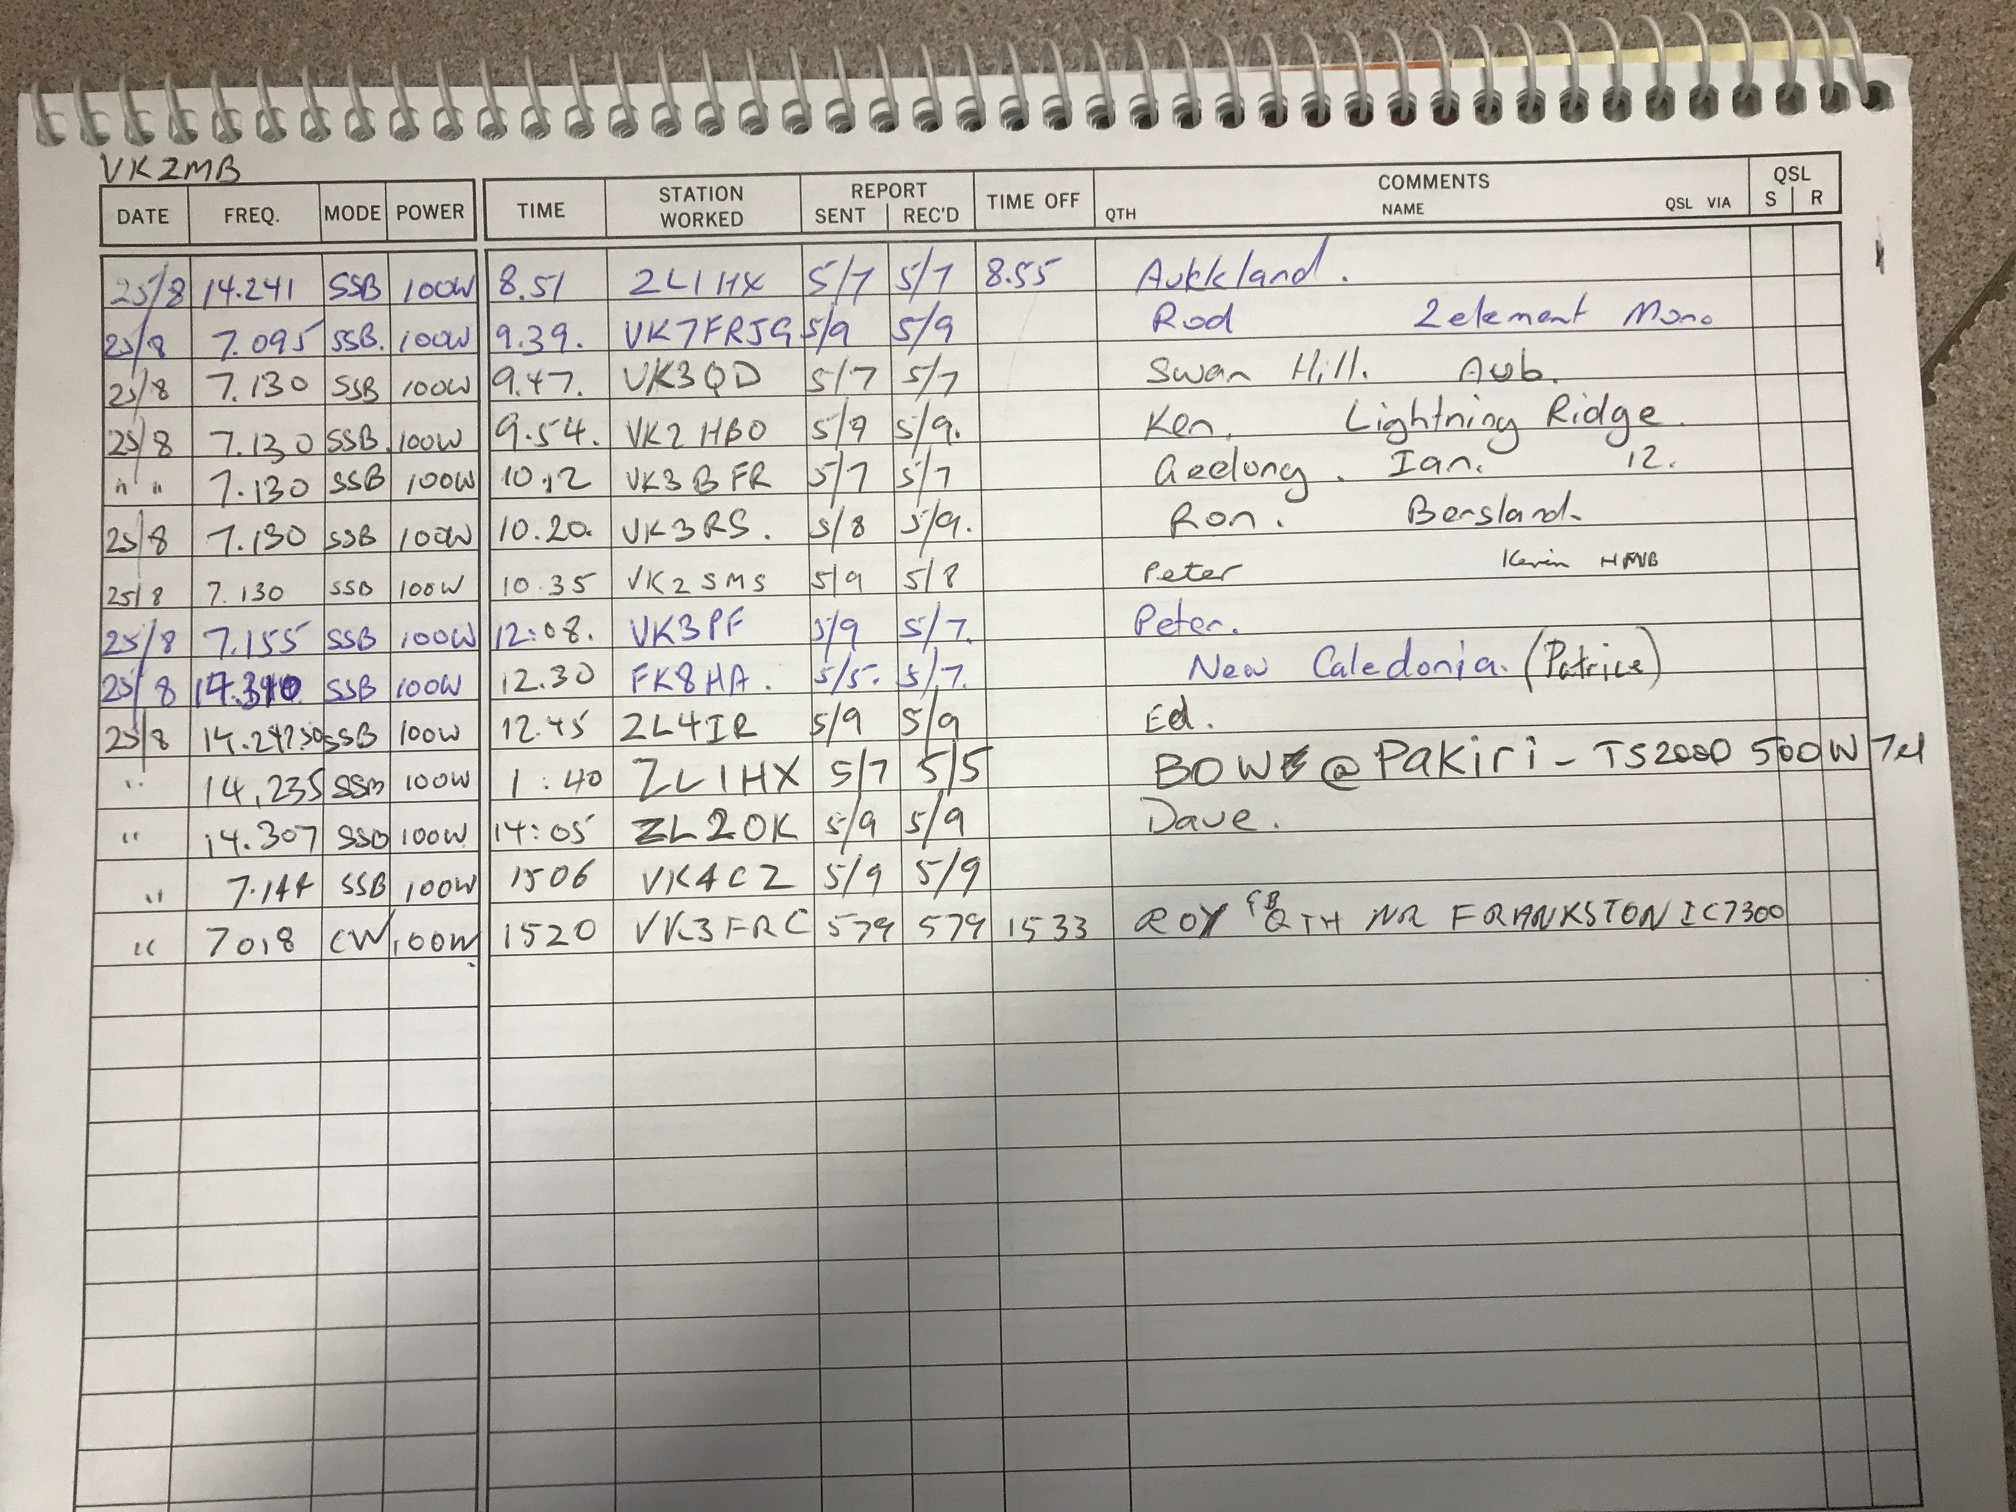 VK2MB
DATE FREQ. MODE POWER TIME STATION WORKED REPORT SENT REC'D TIME OFF COMMENTS QTH NAME QSL VIA QSL S R
25/8 14.241 SSB 100W 8.51 ZL1HX 5/7 5/7 8.55 Aukkland.
25/8 7.095 SSB. 100W 9.39. VK7FRJG 5/9 5/9 Rod 2 element Mono
25/8 7.130 SSB 100W 9.47. VK3QD 5/7 5/7 Swan Hill. Aub.
25/8 7.130 SSB. 100W 9.54. VK2HBO 5/9 5/9. Ken. Lightning Ridge.
" " 7.130 SSB 100W 10.12 VK3BFR 5/7 5/7 Geelong. Ian. 12.
25/8 7.130 SSB 100W 10.20. VK3RS. 5/8 5/9. Ron.
25/8 7.130 SSB 100W 10.35 VK2SMS 5/9 5/8 Peter Kevin
25/8 7.155 SSB 100W 12:08. VK3PF 5/9 5/7. Peter.
25/8 SSB 100W 12.30 FK8HA. 5/5. 5/7. New Caledonia. (Patrice)
25/8 SSB 100W 12.45 ZL4IR 5/9 5/9 Ed.
" 14,235 SSB 100W 1:40 ZL1HX 5/7 5/5 @ Pakiri - TS2000 500W
" 14.307 SSB 100W 14:05 ZL2OK 5/9 5/9 Dave.
" 7.144 SSB 100W 1506 VK4CZ 5/9 5/9
" 7018 CW 100W. 1520 VK3FRC 579 579 1533 ROY QTH NR FRANKSTON IC7300